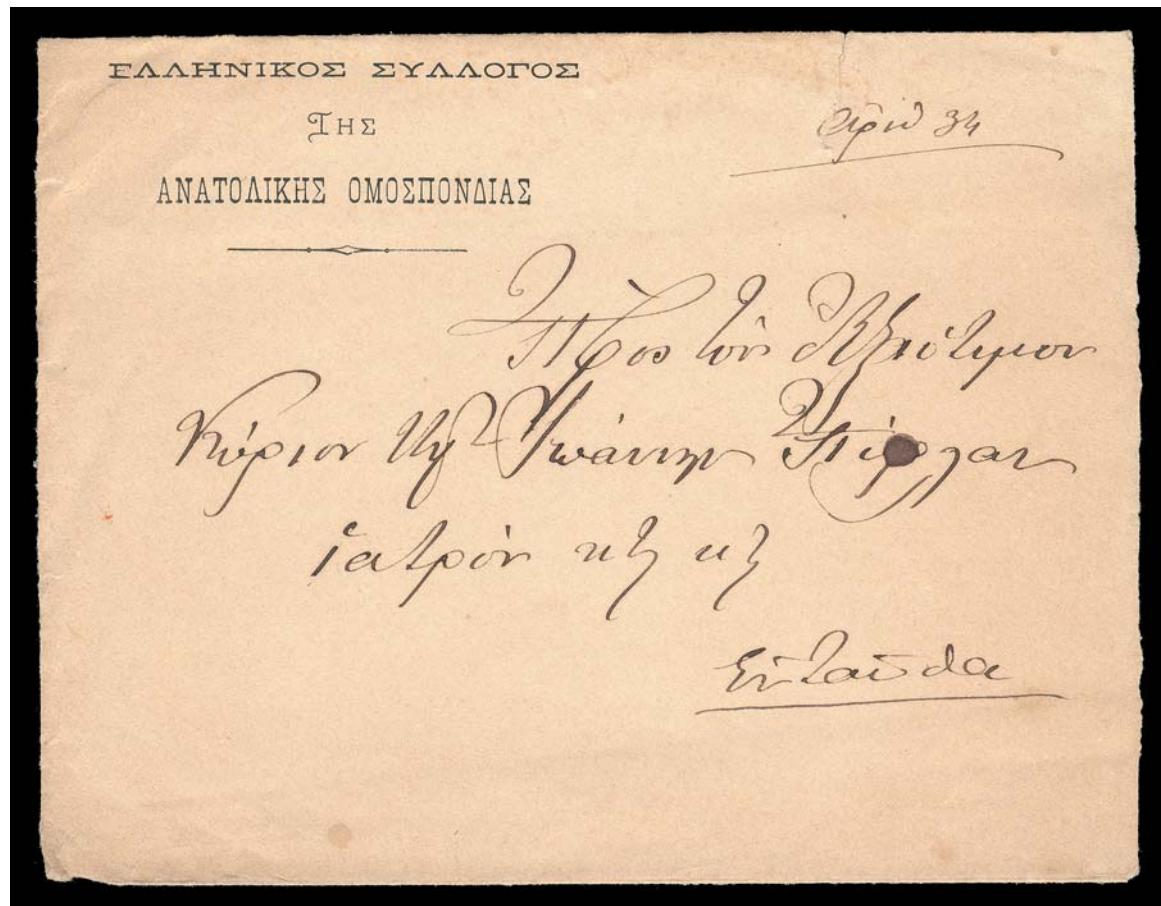 ΕΛΛΗΝΙΚΟΣ ΣΥΛΛΟΓΟΣ
ΤΗΣ
ΑΝΑΤΟΛΙΚΗΣ ΟΜΟΣΠΟΝΔΙΑΣ
Ἀριθ 34
Πρὸς τὸν Ἀξιότιμον
Κύριον Κον Ἰωάννην
ἰατρὸν κτλ κτλ
Ἐνταῦθα